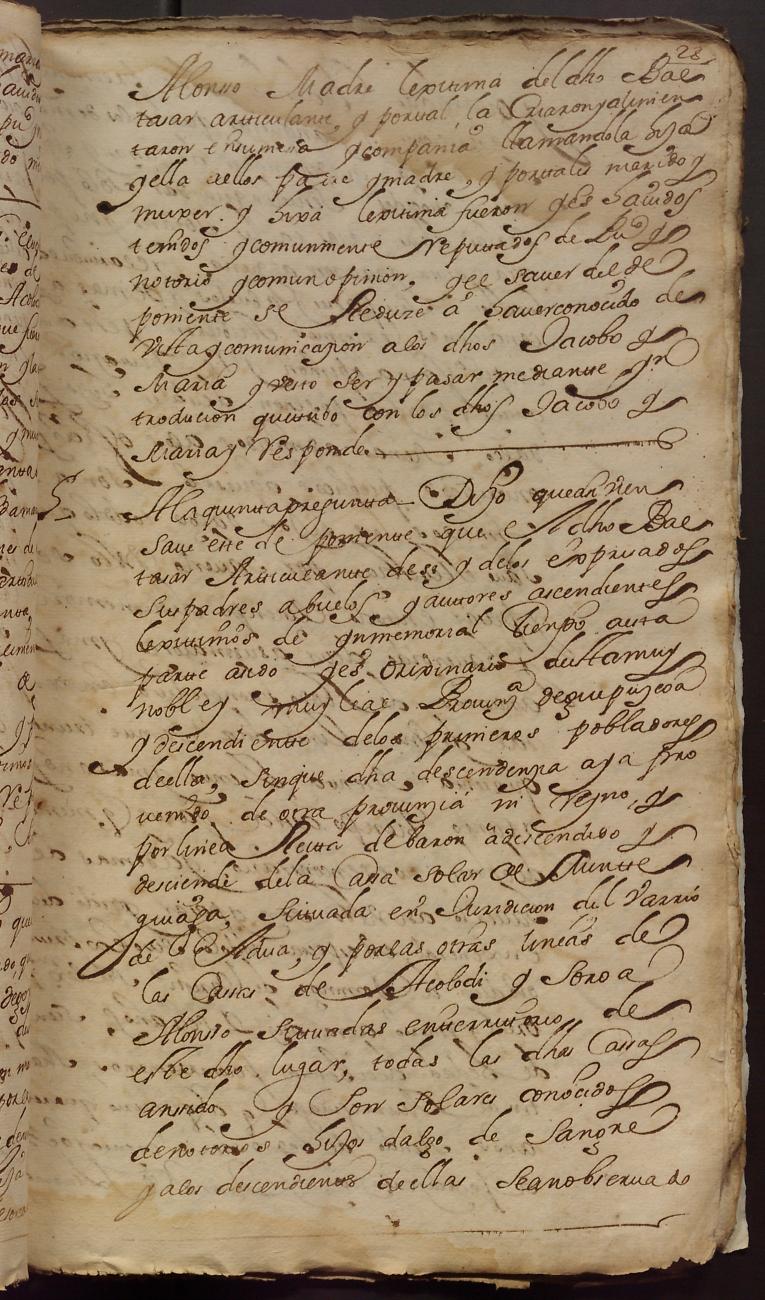 28
Alonso Madre lexitima del dho Bae
tasar articulante, y por tal, la Criaron y alimen
taron en su mesa y compania llamandola hija
y ella a ellos padre y madre, y por tales marido y
muxer y hixa lexitima fueron y es hauidos
tenidos y comunmente Reputados de
notorio y comun opinion, y el sauer del de
poniente se Reduze a hauer conocido de
Vista y comunicazion a los dhos Jacobo y
Maria y visto ser y pasar mediante yn
troducion que tubo con los dhos Jacobo y
Maria y Responde
5 A la quinta pregunta Dijo que
saue este de poniente que el dho Bae
tasar Articulante de si y de los expresados
sus padres abuelos y autores ascendientes
lexitimos de ynmemorial tiempo a esta
parte a sido y es orixinario desta muy
noble y muy leal Prouinza de guipuzcoa
y descendiente de los primeros pobladores
de ella, sin que dha descendenzia aya pro
uenido de otra prouinzia ni Reyno, y
por linea Recta de baron a descendido y
desciende de la Cassa solar de
situada en Juridicion del Varrio
de Adua, y por las otras lineas de
las Casas de Acolodi y Soroa
Alonso situadas en territorio de
este dho lugar, todas las dhas Cassas
an sido y son solares conocidos
de notorios hijos dalgo de sangre
y a los descendientes de ellas se an obseruado